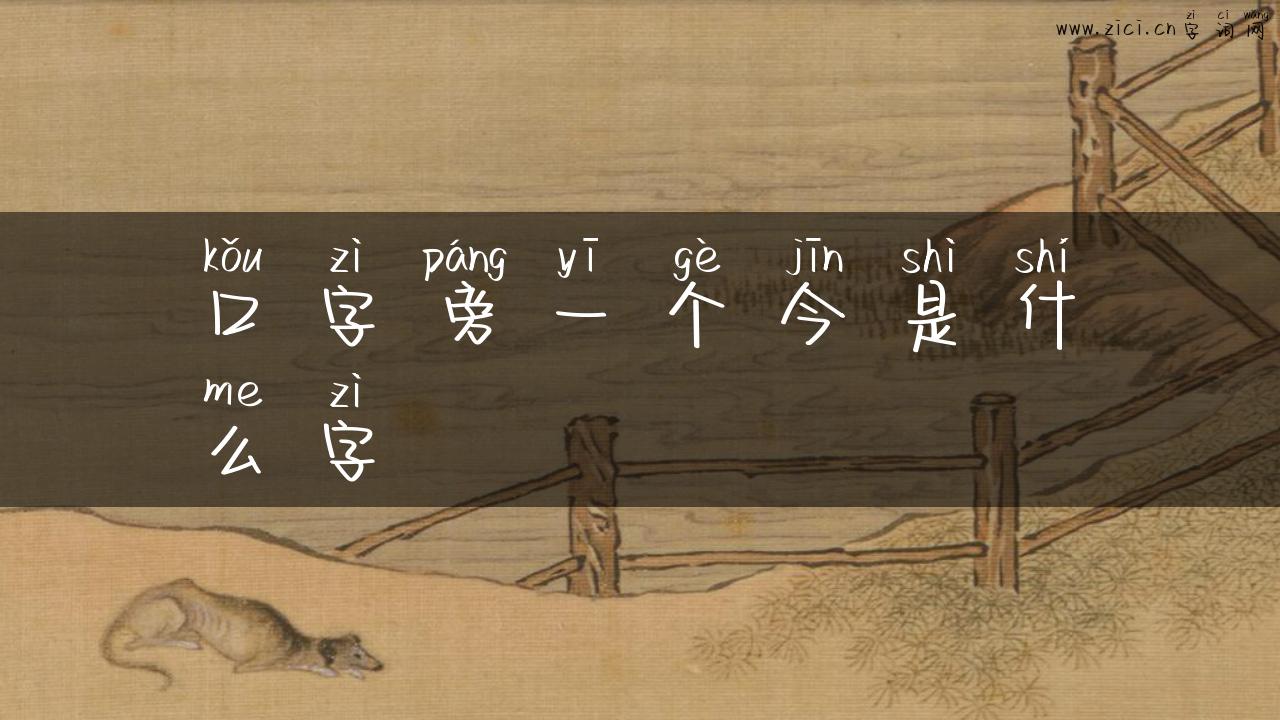 zì cí wǎng
www.zici.cn 字词网
kǒu zì páng yī gè jīn shì shí
口字旁一个今是什
me zì
么字